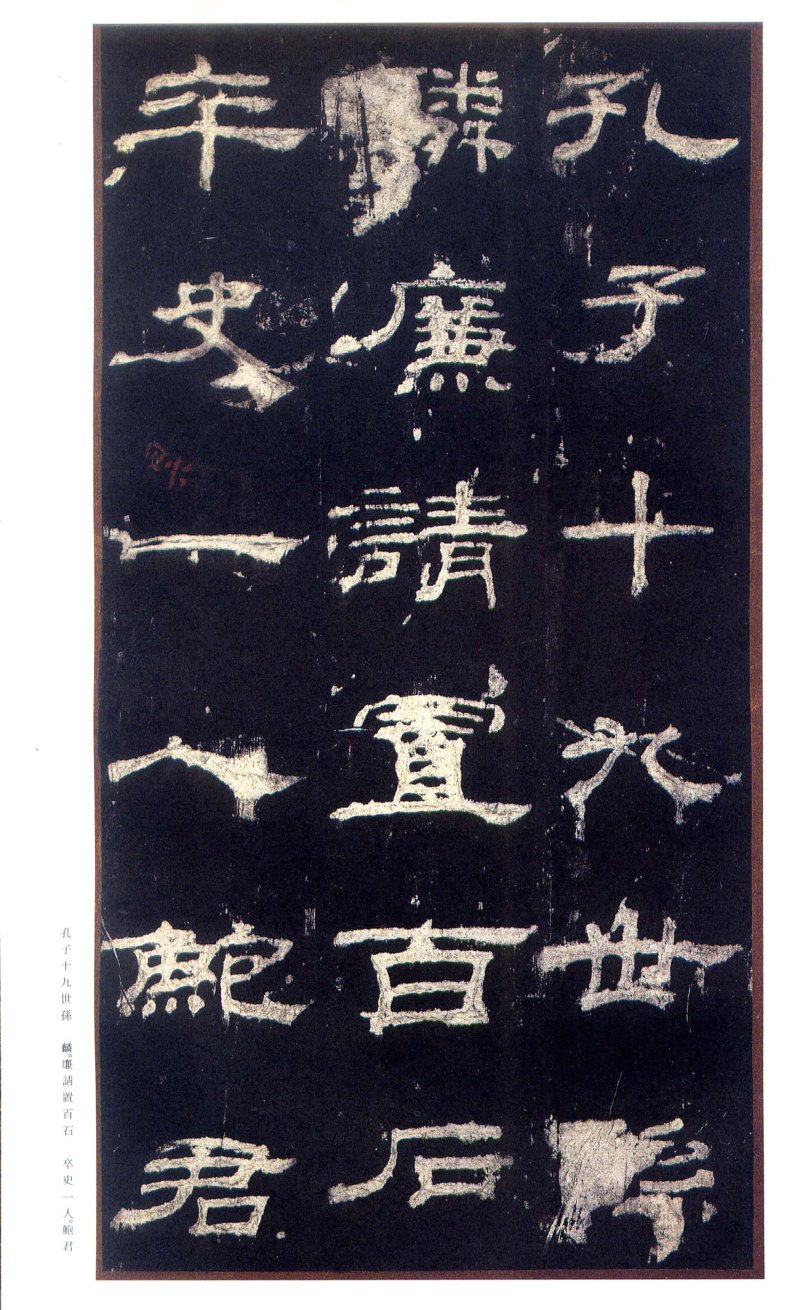 孔子十九世孫
麟廉請置百石
卒史一人鮑君
孔子十九世孫　麟。廉請置百石　卒史一人。鮑君